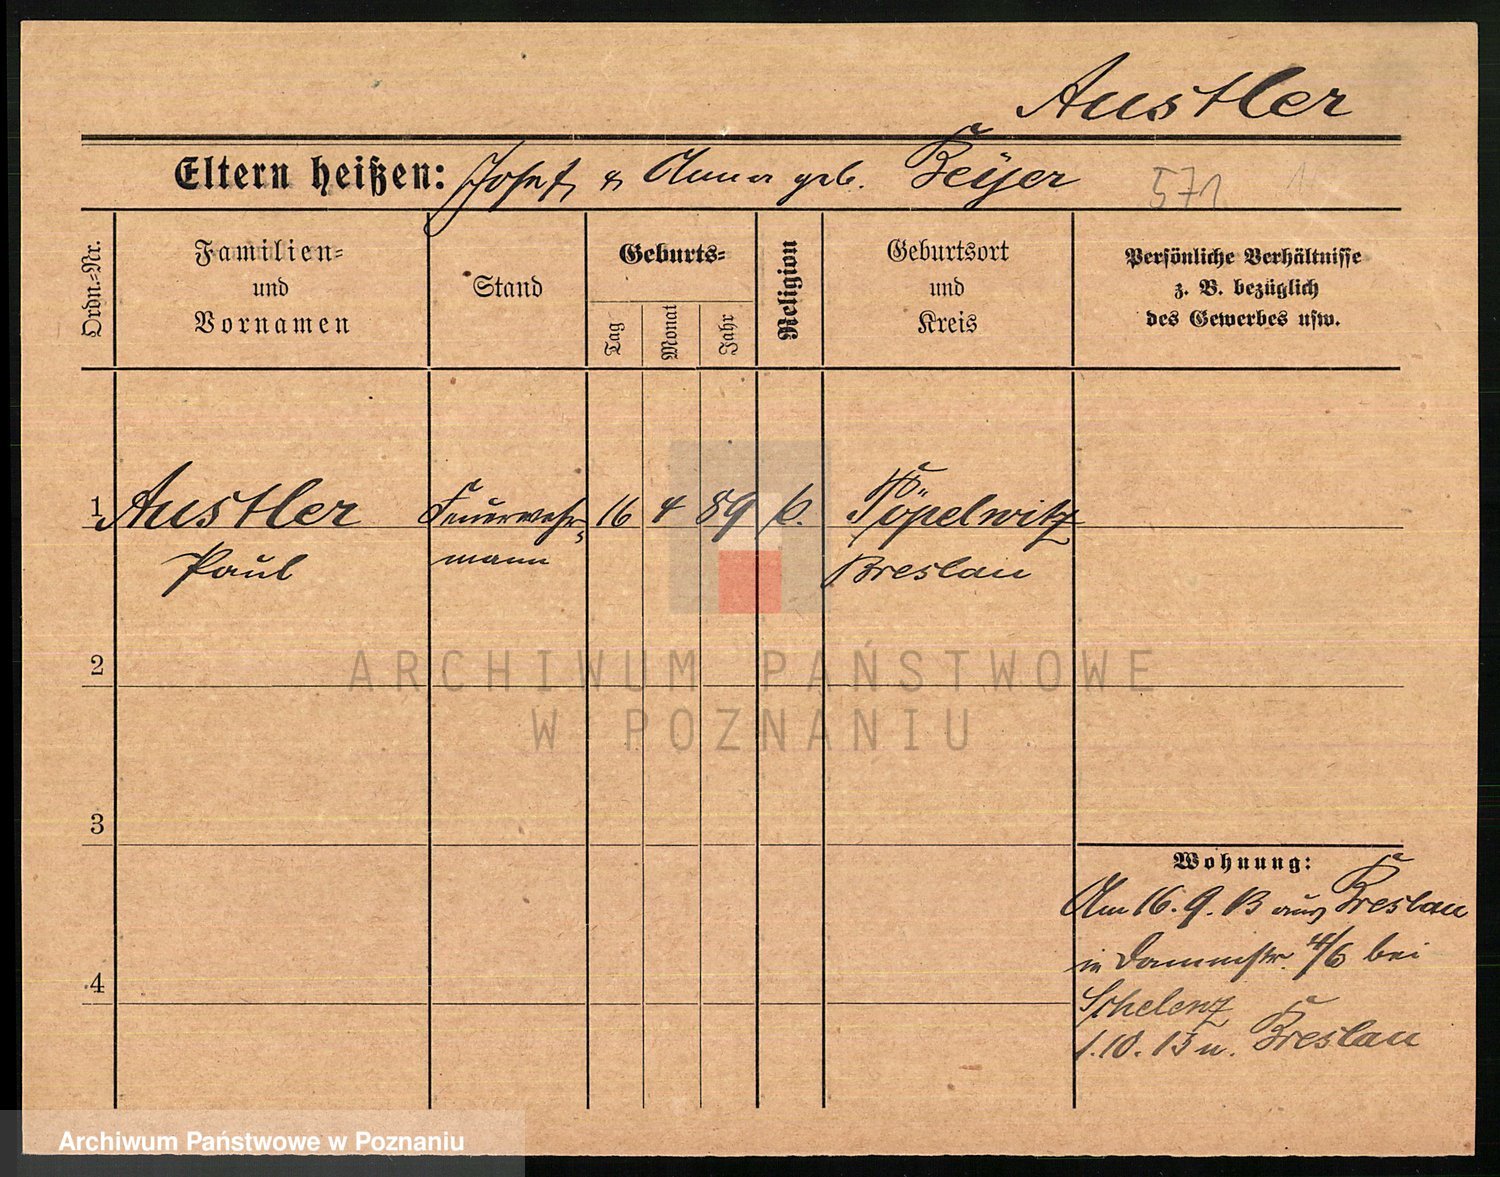 Austler
Eltern heißen: Josef & Anna geb. Beyer 571
Ordn.-Nr.
Familien-
und
Vornamen
Stand
Geburts-
Tag
Monat
Jahr
Religion
Geburtsort
und
Kreis
Persönliche Verhältnisse
z. B. bezüglich
des Gewerbes usw.
1 Austler Feuerwehr- 16 4 89 k. Pöpelwitz
Paul mann Breslau
2
3
4
Wohnung:
Am 16. 9. 13 aus Breslau
in Dammstr. 4/6 bei
Schelenz
1. 10. 13 n. Breslau
ARCHIWUM PAŃSTWOWE
W POZNANIU
Archiwum Państwowe w Poznaniu